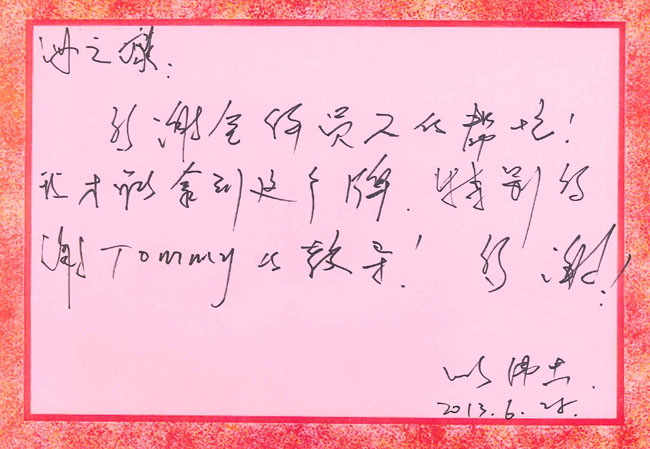 海之康:
多谢全体员工的帮忙!
我才能拿到这个牌.特别多
谢Tommy的教导! 多谢!
2013.6.